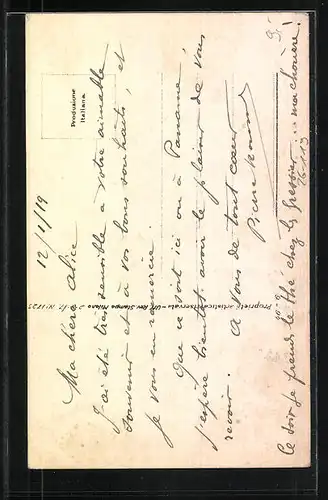 Produzione
Italiana.
12/1/19
Ma chère Alice
J'ai été très sensible à votre aimable
souvenir et à vos bons souhaits, et
je vous en remercie.
Que ce soit ici ou à Paname
j'espère bientôt avoir le plaisir de vous
revoir.
A vous de tout cœur
Ce soir je prends le thé chez les ... ma chouère!
26113
Proprietà artistica riservata - Uff. Rev. Stampa Milano